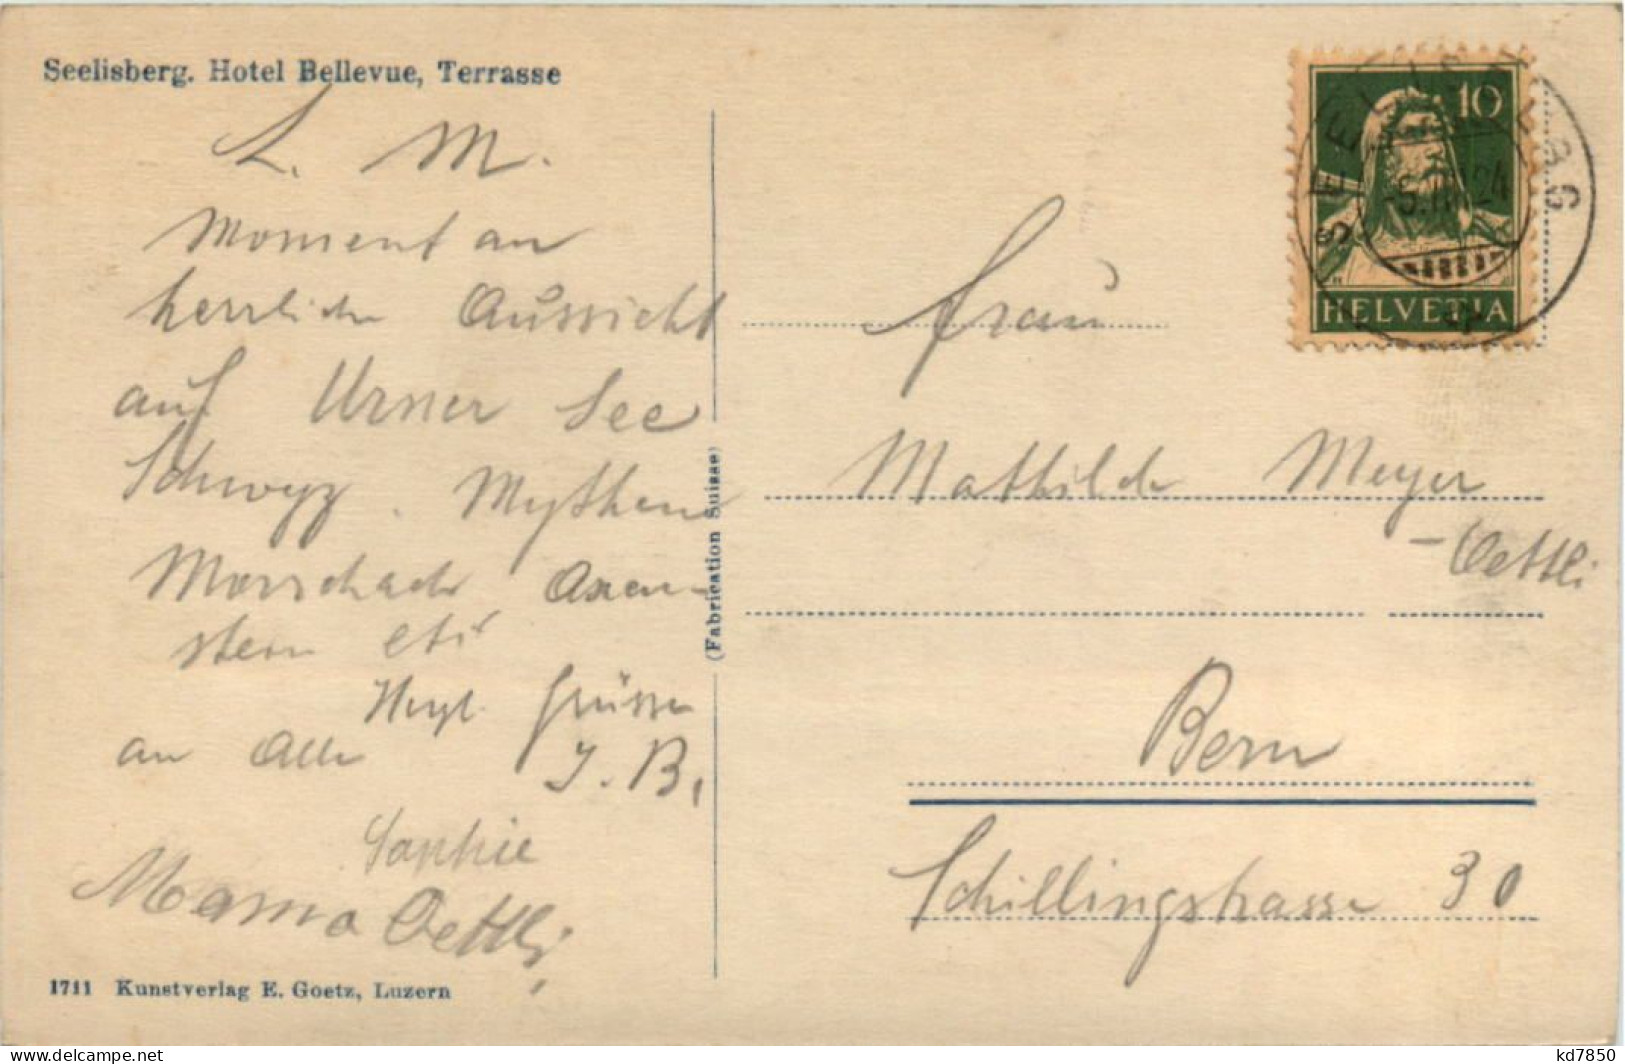 Seelisberg. Hotel Bellevue, Terrasse
L. M.
Moment an
herrliche Aussicht
auf Urner See
Schwyz. Mythen
Morschach Axen-
stein etc
Herzl. Grüsse
an Alle J. B.
Sophie
Mama Oettli
1711 Kunstverlag E. Goetz, Luzern
(Fabrication Suisse)
10
SEELISBERG
HELVETIA
Frau
Mathilde Meyer
-Oettli
Bern
Schillingstrasse 30
www.delcampe.net
kd7850